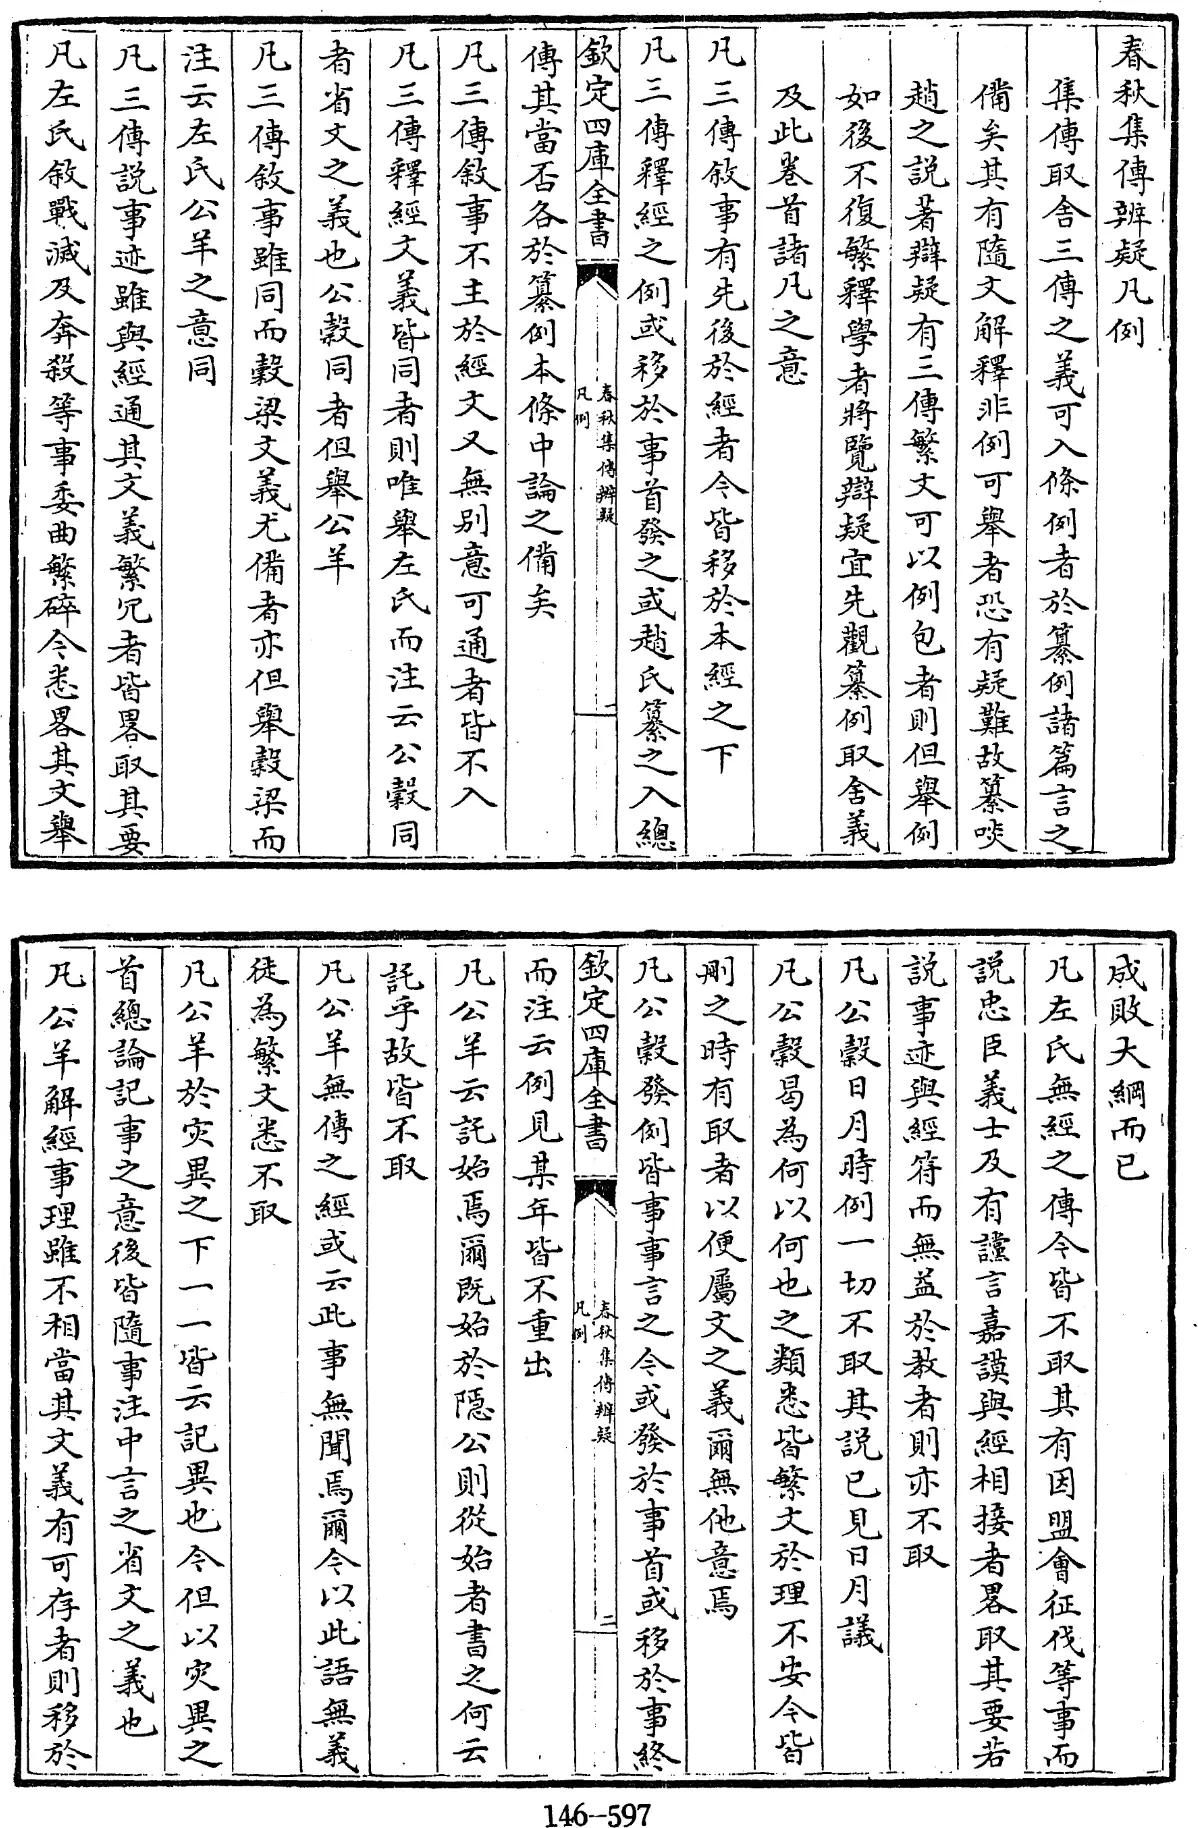 春秋集傳辨疑凡例
集傳取舍三傳之義可入條例者於纂例諸篇言之
備矣其有隨文解釋非例可舉者恐有疑難故纂啖
趙之說著辯疑有三傳繁文可以例包者則但舉例
如後不復繁釋學者將覽辯疑宜先觀纂例取舍義
及此卷首諸凡之意
凡三傳敘事有先後於經者今皆移於本經之下
凡三傳釋經之例或移於事首發之或趙氏纂之入總
欽定四庫全書
春秋集傳辨疑
凡例
一
傳其當否各於纂例本條中論之備矣
凡三傳敘事不主於經文又無別意可通者皆不入
凡三傳釋經文義皆同者則唯舉左氏而注云公穀同
者省文之義也公穀同者但舉公羊
凡三傳敘事雖同而穀梁文義尤備者亦但舉穀梁而
注云左氏公羊之意同
凡三傳說事迹雖與經通其文義繁冗者皆畧取其要
凡左氏敘戰滅及奔殺等事委曲繁碎今悉畧其文舉
成敗大綱而已
凡左氏無經之傳今皆不取其有因盟會征伐等事而
說忠臣義士及有讜言嘉謨與經相接者畧取其要若
說事迹與經符而無益於教者則亦不取
凡公穀日月時例一切不取其說已見日月議
凡公穀曷為何以何也之類悉皆繁文於理不安今皆
刪之時有取者以便屬文之義爾無他意焉
凡公穀發例皆事事言之今或發於事首或移於事終
欽定四庫全書
春秋集傳辨疑
凡例
二
而注云例見某年皆不重出
凡公羊云託始焉爾既始於隱公則從始者書之何云
託乎故皆不取
凡公羊無傳之經或云此事無聞焉爾今以此語無義
徒為繁文悉不取
凡公羊於灾異之下一一皆云記異也今但以灾異之
首總論記事之意後皆隨事注中言之省文之義也
凡公羊解經事理雖不相當其文義有可存者則移於
146-597